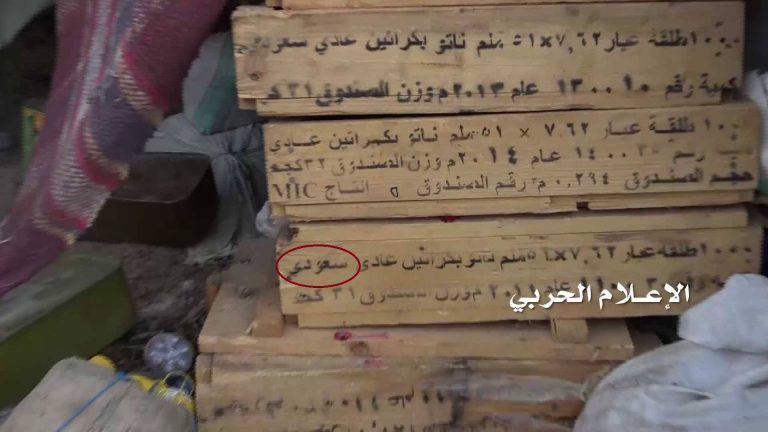 ١٠٠٠ طلقه عيار ٧,٦٢×٥١ ملم ناتو بكراتين عادي سعودي
كمية رقم ١٣٠٠١٠ عام ٢٠١٣م وزن الصندوق ٣١ كجم
١٠٠٠ طلقة عيار ٧,٦٢ × ٥١ ملم ناتو بكراتين عادي
١٤٠٠ عام ٢٠١٤م وزن الصندوق ٣٢ كجم
حجم الصندوق ٠,٢٩٤ م رقم الصندوق ٥ انتاج MIC
١٠٠٠ طلقه عيار ٧,٦٢×٥١ ملم ناتو بكراتين عادي سعودي
عام ٢٠١١م وزن الصندوق ٣١ كجم
الإعلام الحربي